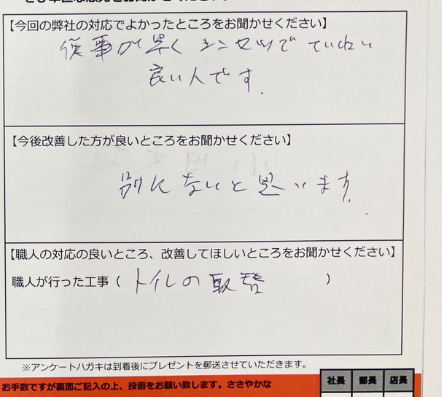 【今回の弊社の対応でよかったところをお聞かせください】
仕事が早くシンセツでていねい
良い人です.
【今後改善した方が良いところをお聞かせください】
別にないと思います.
【職人の対応の良いところ、改善してほしいところをお聞かせください】
職人が行った工事（トイレの取替）
※アンケートハガキは到着後にプレゼントを郵送させていただきます。
社長 部長 店長
お手数ですが裏面ご記入の上、投函をお願い致します。ささやかな